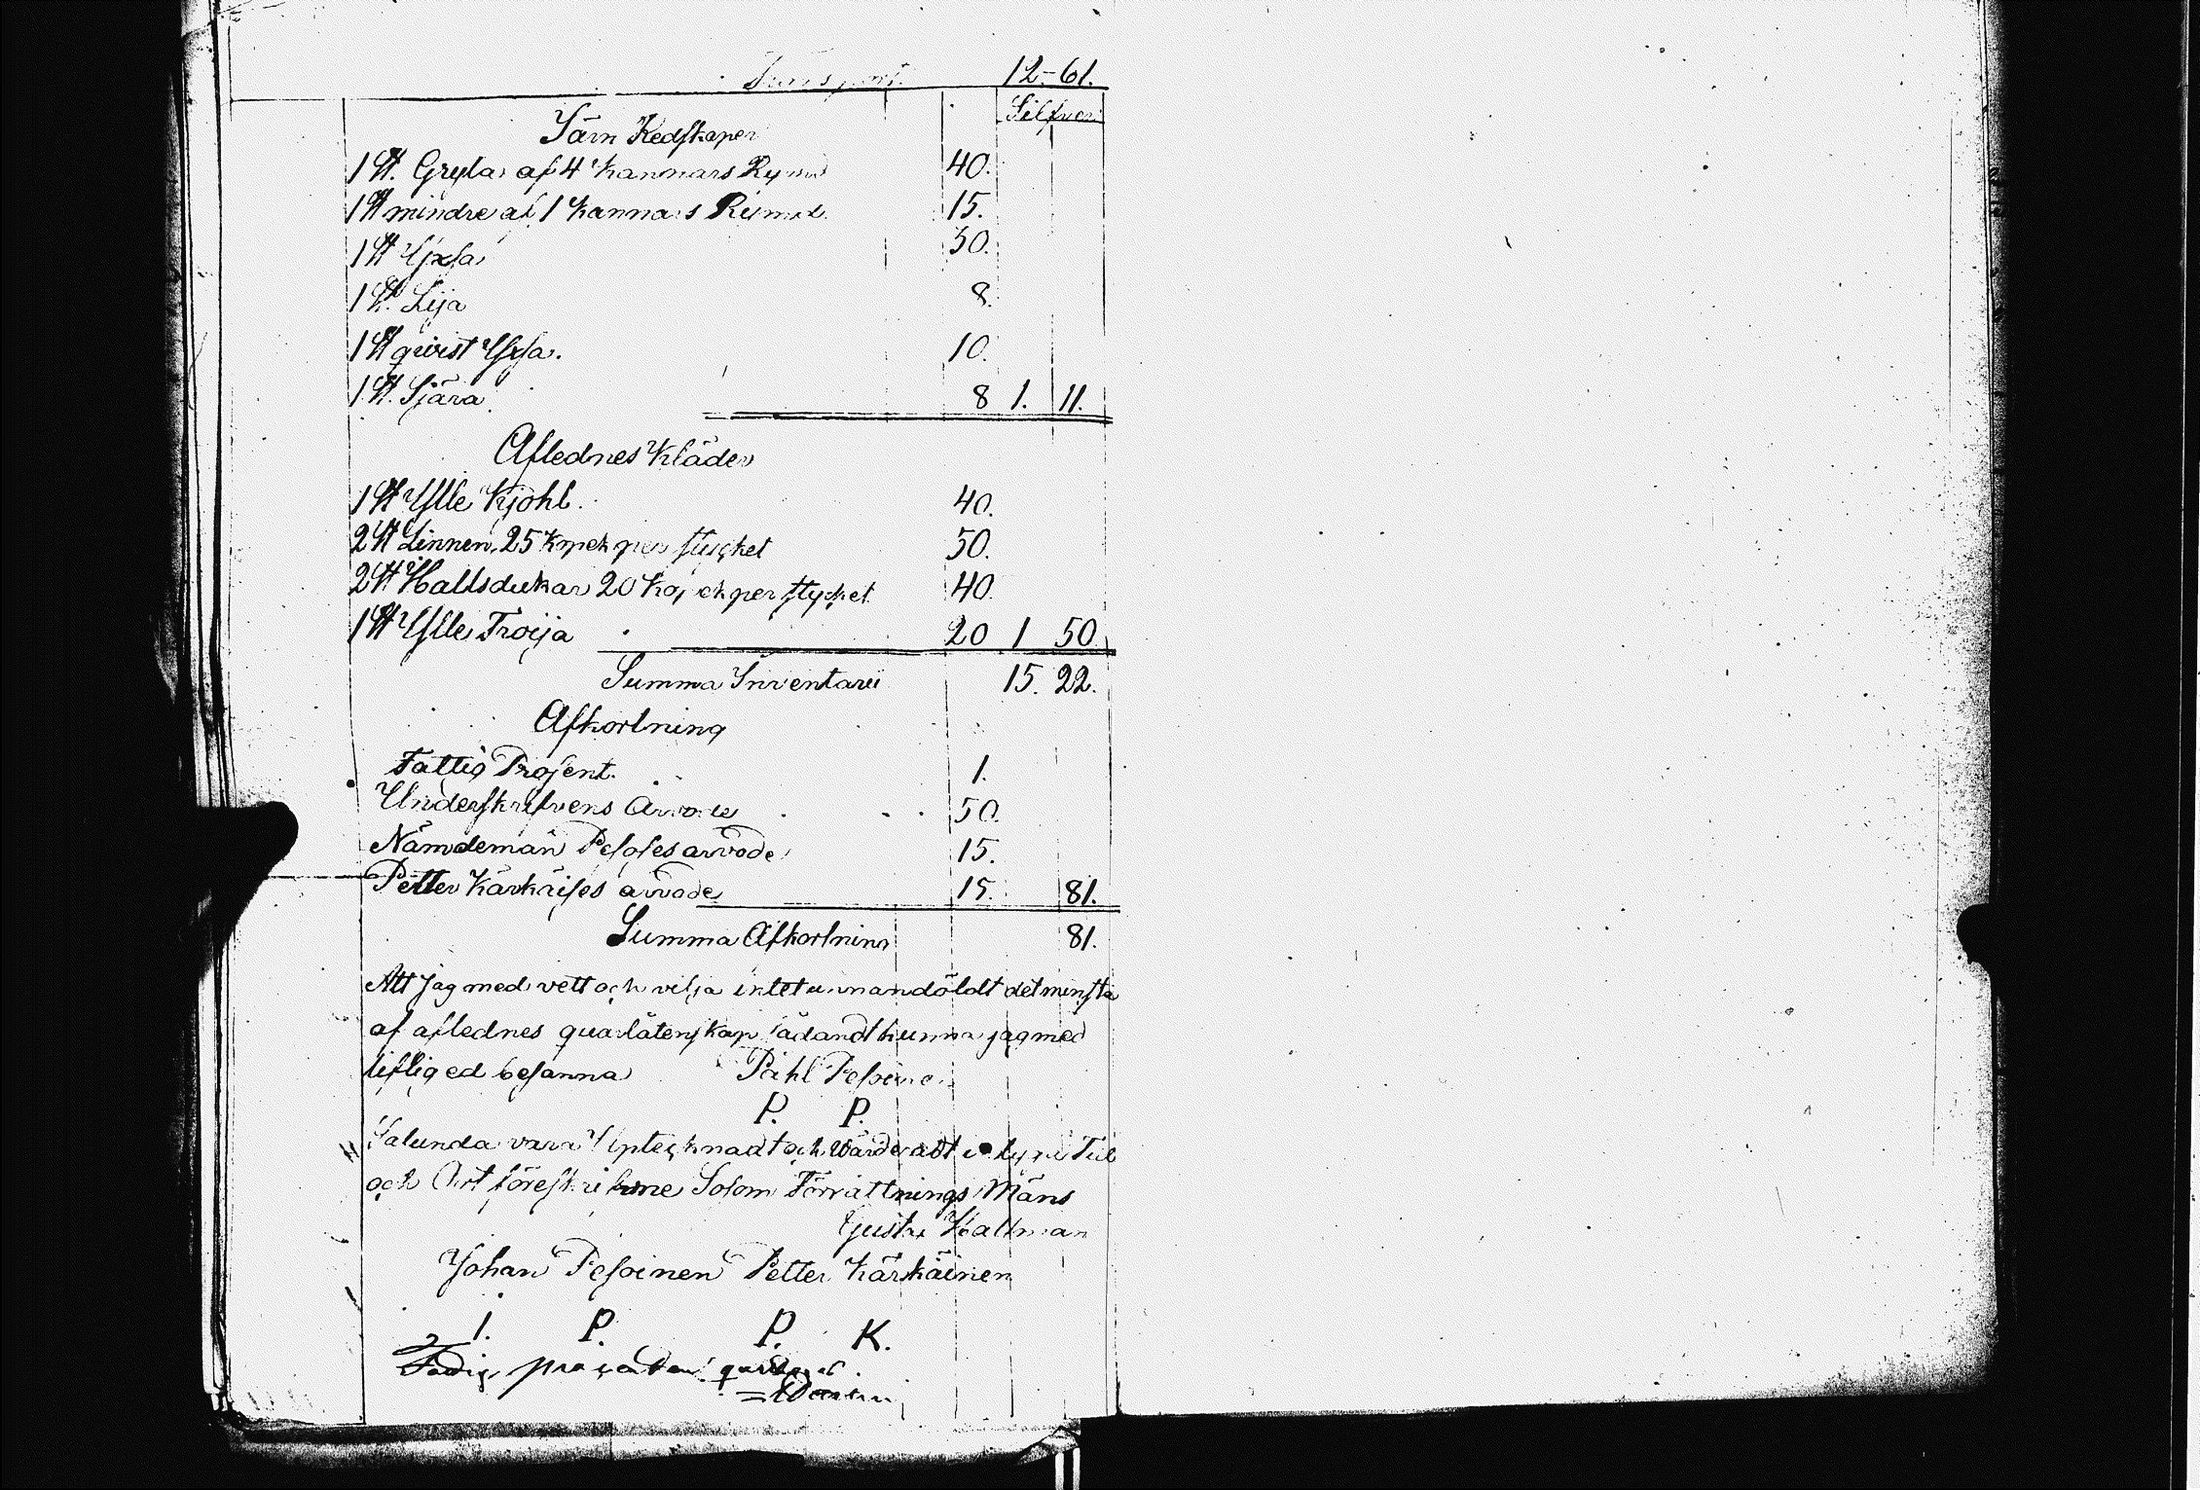 Transport 12-61.
Silfver
Järn Redskaper
1 St. Gryta af 4 Kannars Rymd 40.
1 St mindre af 1 Kannars Rymd 15.
1 St Yxsa 30.
1 St. Lija 8.
1 St qvist Yxsa. 10.
1 St. Sjära 8 1. 11.
Aflednes Kläder
1 St Ylle Kjohl. 40.
2 St Linnen, 25 Kopek per stycket 50.
2 St Hallsdukar 20 Kopek per stycket 40.
1 St Ylle Troija 20 1 50.
Summa Inventarii 15. 22.
Afkortning
Fattig Prosent. 1.
Underskrifvens Arvode 50.
Nämdemän Pesoses arvode 15.
Petter Kärhäises arvode 15. 81.
Summa Afkortning 81.
Att jag med vett och vilja intet unnandöldt det minsta
af aflednes quarlåtenskap sådandt kunna jag med
liflig ed besanna Påhl Pesoinen
P. P.
Salunda vara Uptecknadt och Wärderadt
och Ort föreskrifvne Solom Förrättnings Mäns
Gustav Hallman
Johan Pesoinen Petter Kärhäinen
I. P. P. K.